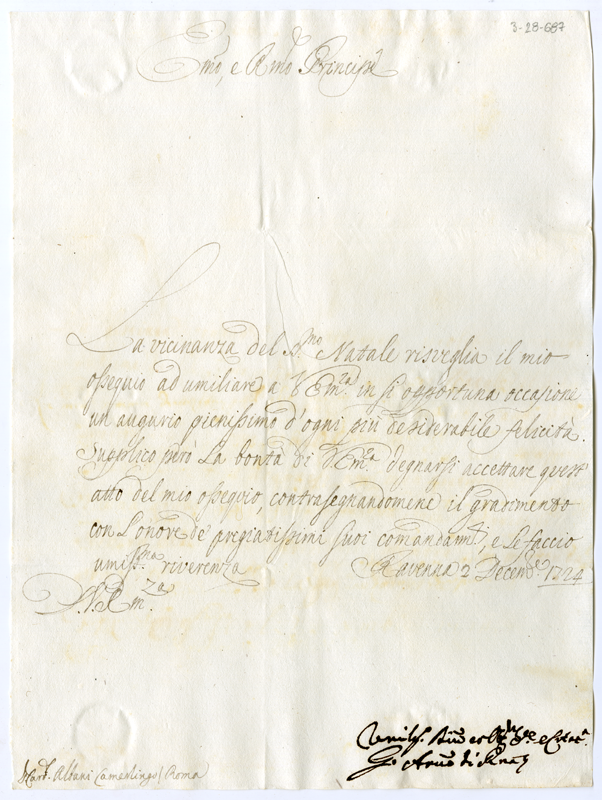 3-28-687
Emo, e Rmo Principe
La vicinanza del S.mo Natale risveglia il mio
ossequio ad umiliare a V Em.za in si opportuna occasione
un augurio pienissimo d'ogni più desiderabile felicità.
Supplico però La bontà di V Em.za degnarsi accettare quest'
atto del mio ossequio, contrasegnandomene il gradimento
con L'onore de pregiatissimi suoi comandam.ti, e Le faccio
umiss.ma riverenza Ravenna 2 Decembre 1724
S. V. Em.za
Umilis.
Card. Albani Camerlingo / Roma